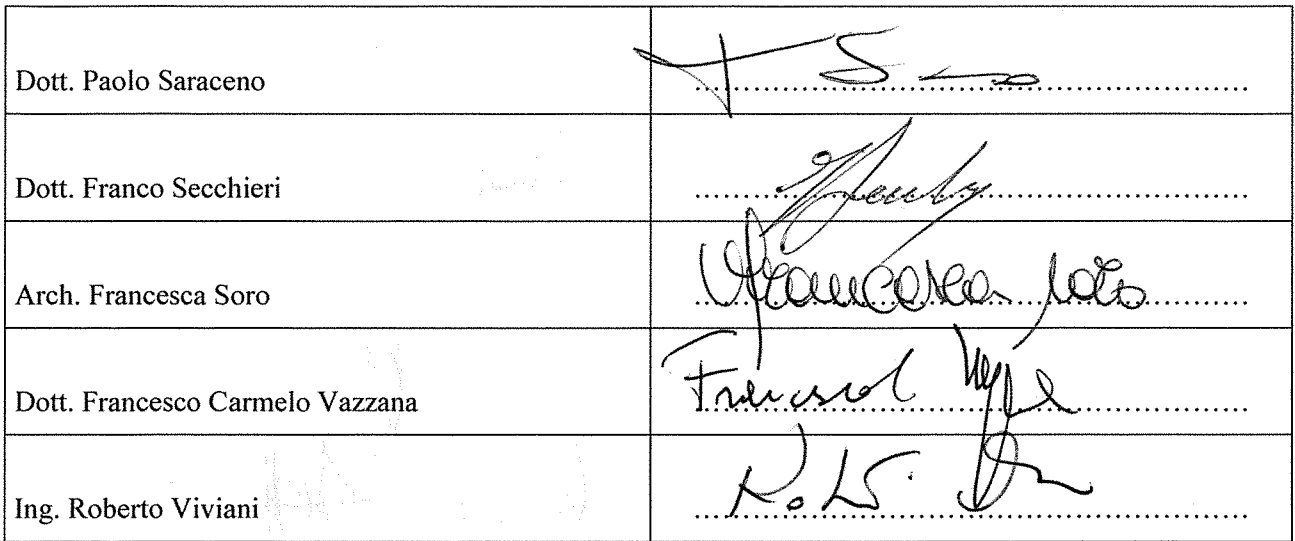 Dott. Paolo Saraceno
Dott. Franco Secchieri
Arch. Francesca Soro
Francesca Soro
Dott. Francesco Carmelo Vazzana
Ing. Roberto Viviani